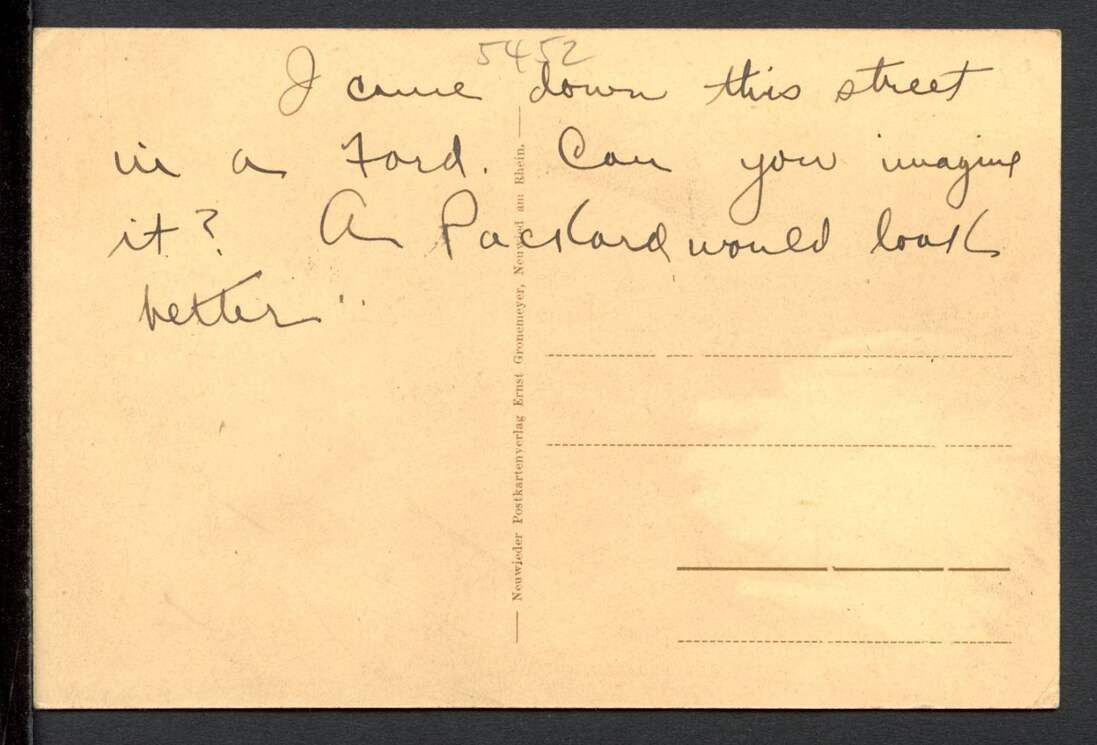 5452
I came down this street
in a Ford. Can you imagine
it? A Packard would look
better"
— Neuwieder Postkartenverlag Ernst Gronemeyer, Neuwied am Rhein. —